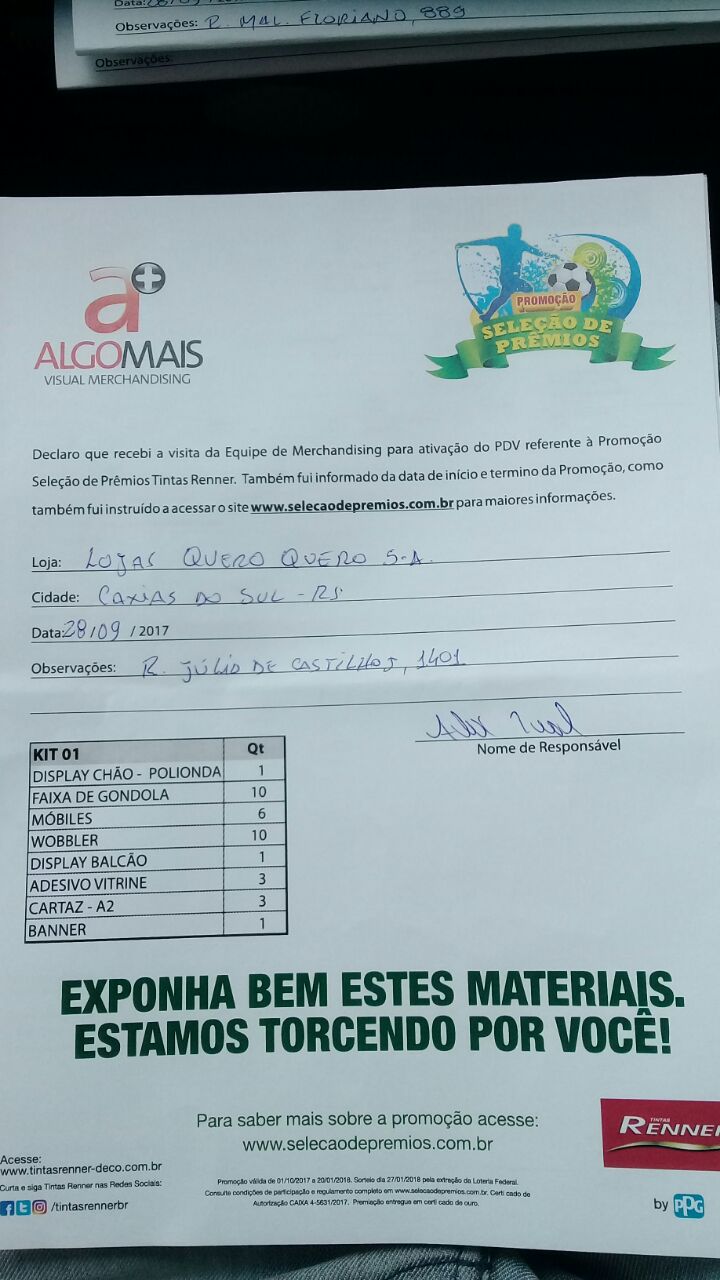 Data: 28/09
Observações: R. MAL. FLORIANO, 889
Observações:
a+
ALGOMAIS
VISUAL MERCHANDISING
PROMOÇÃO
SELEÇÃO DE
PRÊMIOS
Declaro que recebi a visita da Equipe de Merchandising para ativação do PDV referente à Promoção
Seleção de Prêmios Tintas Renner. Também fui informado da data de início e termino da Promoção, como
também fui instruído a acessar o site www.selecaodepremios.com.br para maiores informações.
Loja: LOJAS QUERO QUERO S.A.
Cidade: CAXIAS DO SUL - RS.
Data: 28/09 / 2017
Observações: R. JÚLIO DE CASTILHOS, 1401
Nome de Responsável
KIT 01 Qt
DISPLAY CHÃO - POLIONDA 1
FAIXA DE GONDOLA 10
MÓBILES 6
WOBBLER 10
DISPLAY BALCÃO 1
ADESIVO VITRINE 3
CARTAZ - A2 3
BANNER 1
EXPONHA BEM ESTES MATERIAIS.
ESTAMOS TORCENDO POR VOCÊ!
Para saber mais sobre a promoção acesse:
www.selecaodepremios.com.br
TINTAS
RENNER
Acesse:
www.tintasrenner-deco.com.br
Curta e siga Tintas Renner nas Redes Sociais:
/tintasrennerbr
Promoção válida de 01/10/2017 a 20/01/2018. Sorteio dia 27/01/2018 pela extração da Loteria Federal.
Consulte condições de participação e regulamento completo em www.selecaodepremios.com.br. Certi cado de
Autorização CAIXA 4-5631/2017. Premiação entregue em certi cado de ouro.
by PPG